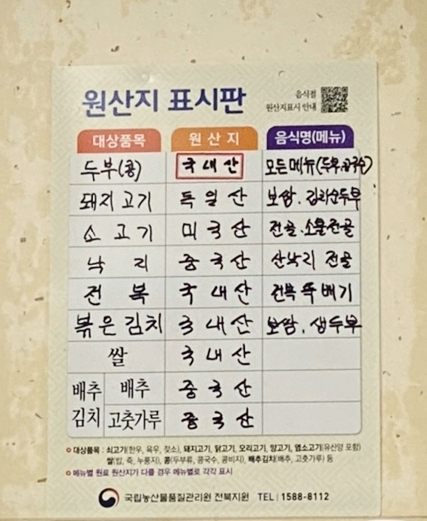 원산지 표시판
음식점
원산지표시 안내
대상품목 원산지 음식명(메뉴)
두부(콩) 국내산 모든메뉴(두부,콩국수)
돼지고기 독일산 보쌈. 김치순두부
소고기 미국산 전골.소울전골
낙지 중국산 산낙지 전골
전복 국내산 전복 뚝배기
볶은김치 국내산 보쌈. 생두부
쌀 국내산
배추김치 배추 중국산
고춧가루 중국산
대상품목 : 쇠고기(한우, 육우, 젖소), 돼지고기, 닭고기, 오리고기, 양고기, 염소고기(유산양 포함)
쌀(밥, 죽, 누룽지), 콩(두부류, 콩국수, 콩비지), 배추김치(배추, 고춧가루) 등
메뉴별 원료 원산지가 다를 경우 메뉴별로 각각 표시
국립농산물품질관리원 전북지원 TEL | 1588-8112